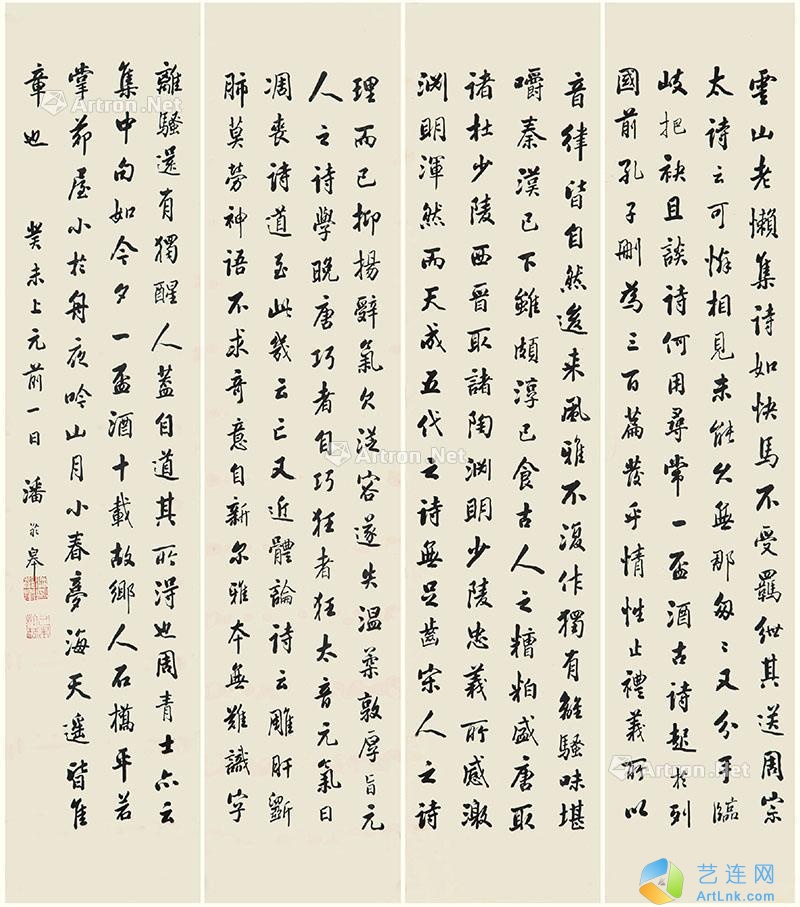 雲山老懶集詩如快馬不受羈紲其送周宗
太詩云可憐相見未能久無那匆〻又分手臨
岐把袂且談詩何用尋常一盃酒古詩起於列
國前孔子刪為三百篇發乎情性止禮義所以
音律皆自然後來風雅不復作獨有離騷味堪
嚼秦漢已下雖頗淳已食古人之糟粕盛唐取
諸杜少陵西晉取諸陶淵明少陵忠義所感激
淵明渾然而天成五代之詩無足齒宋人之詩
理而已抑揚辭氣欠從容遂失溫柔敦厚旨元
人之詩學晚唐巧者自巧狂者狂太音元氣日
凋喪詩道至此幾云亡又近體論詩云雕肝斵
肺莫勞神語不求奇意自新尔雅本無難識字
離騷還有獨醒人蓋自道其所得也周青士亦云
集中句如今夕一盃酒十載故鄉人石橋平若
掌茆屋小於舟夜吟山月小春夢海天遥皆隹
章也 癸未上元前一日 潘齡皋
Artron.Net
Artron.Net
Artron.Net
Artron.Net
Artron.Net
艺连网
ArtLnk.Com